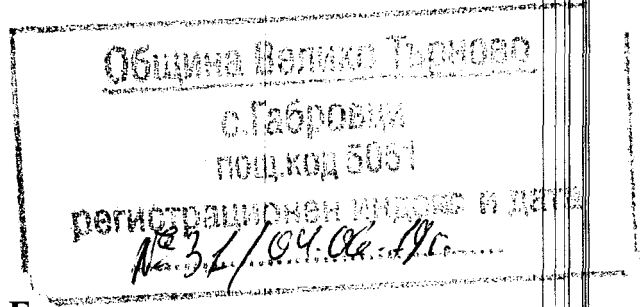 Община Велико Търново
с.Габровци
пощ.код 5051
регистрационен индекс и дата
№ 31/04.06.19г.